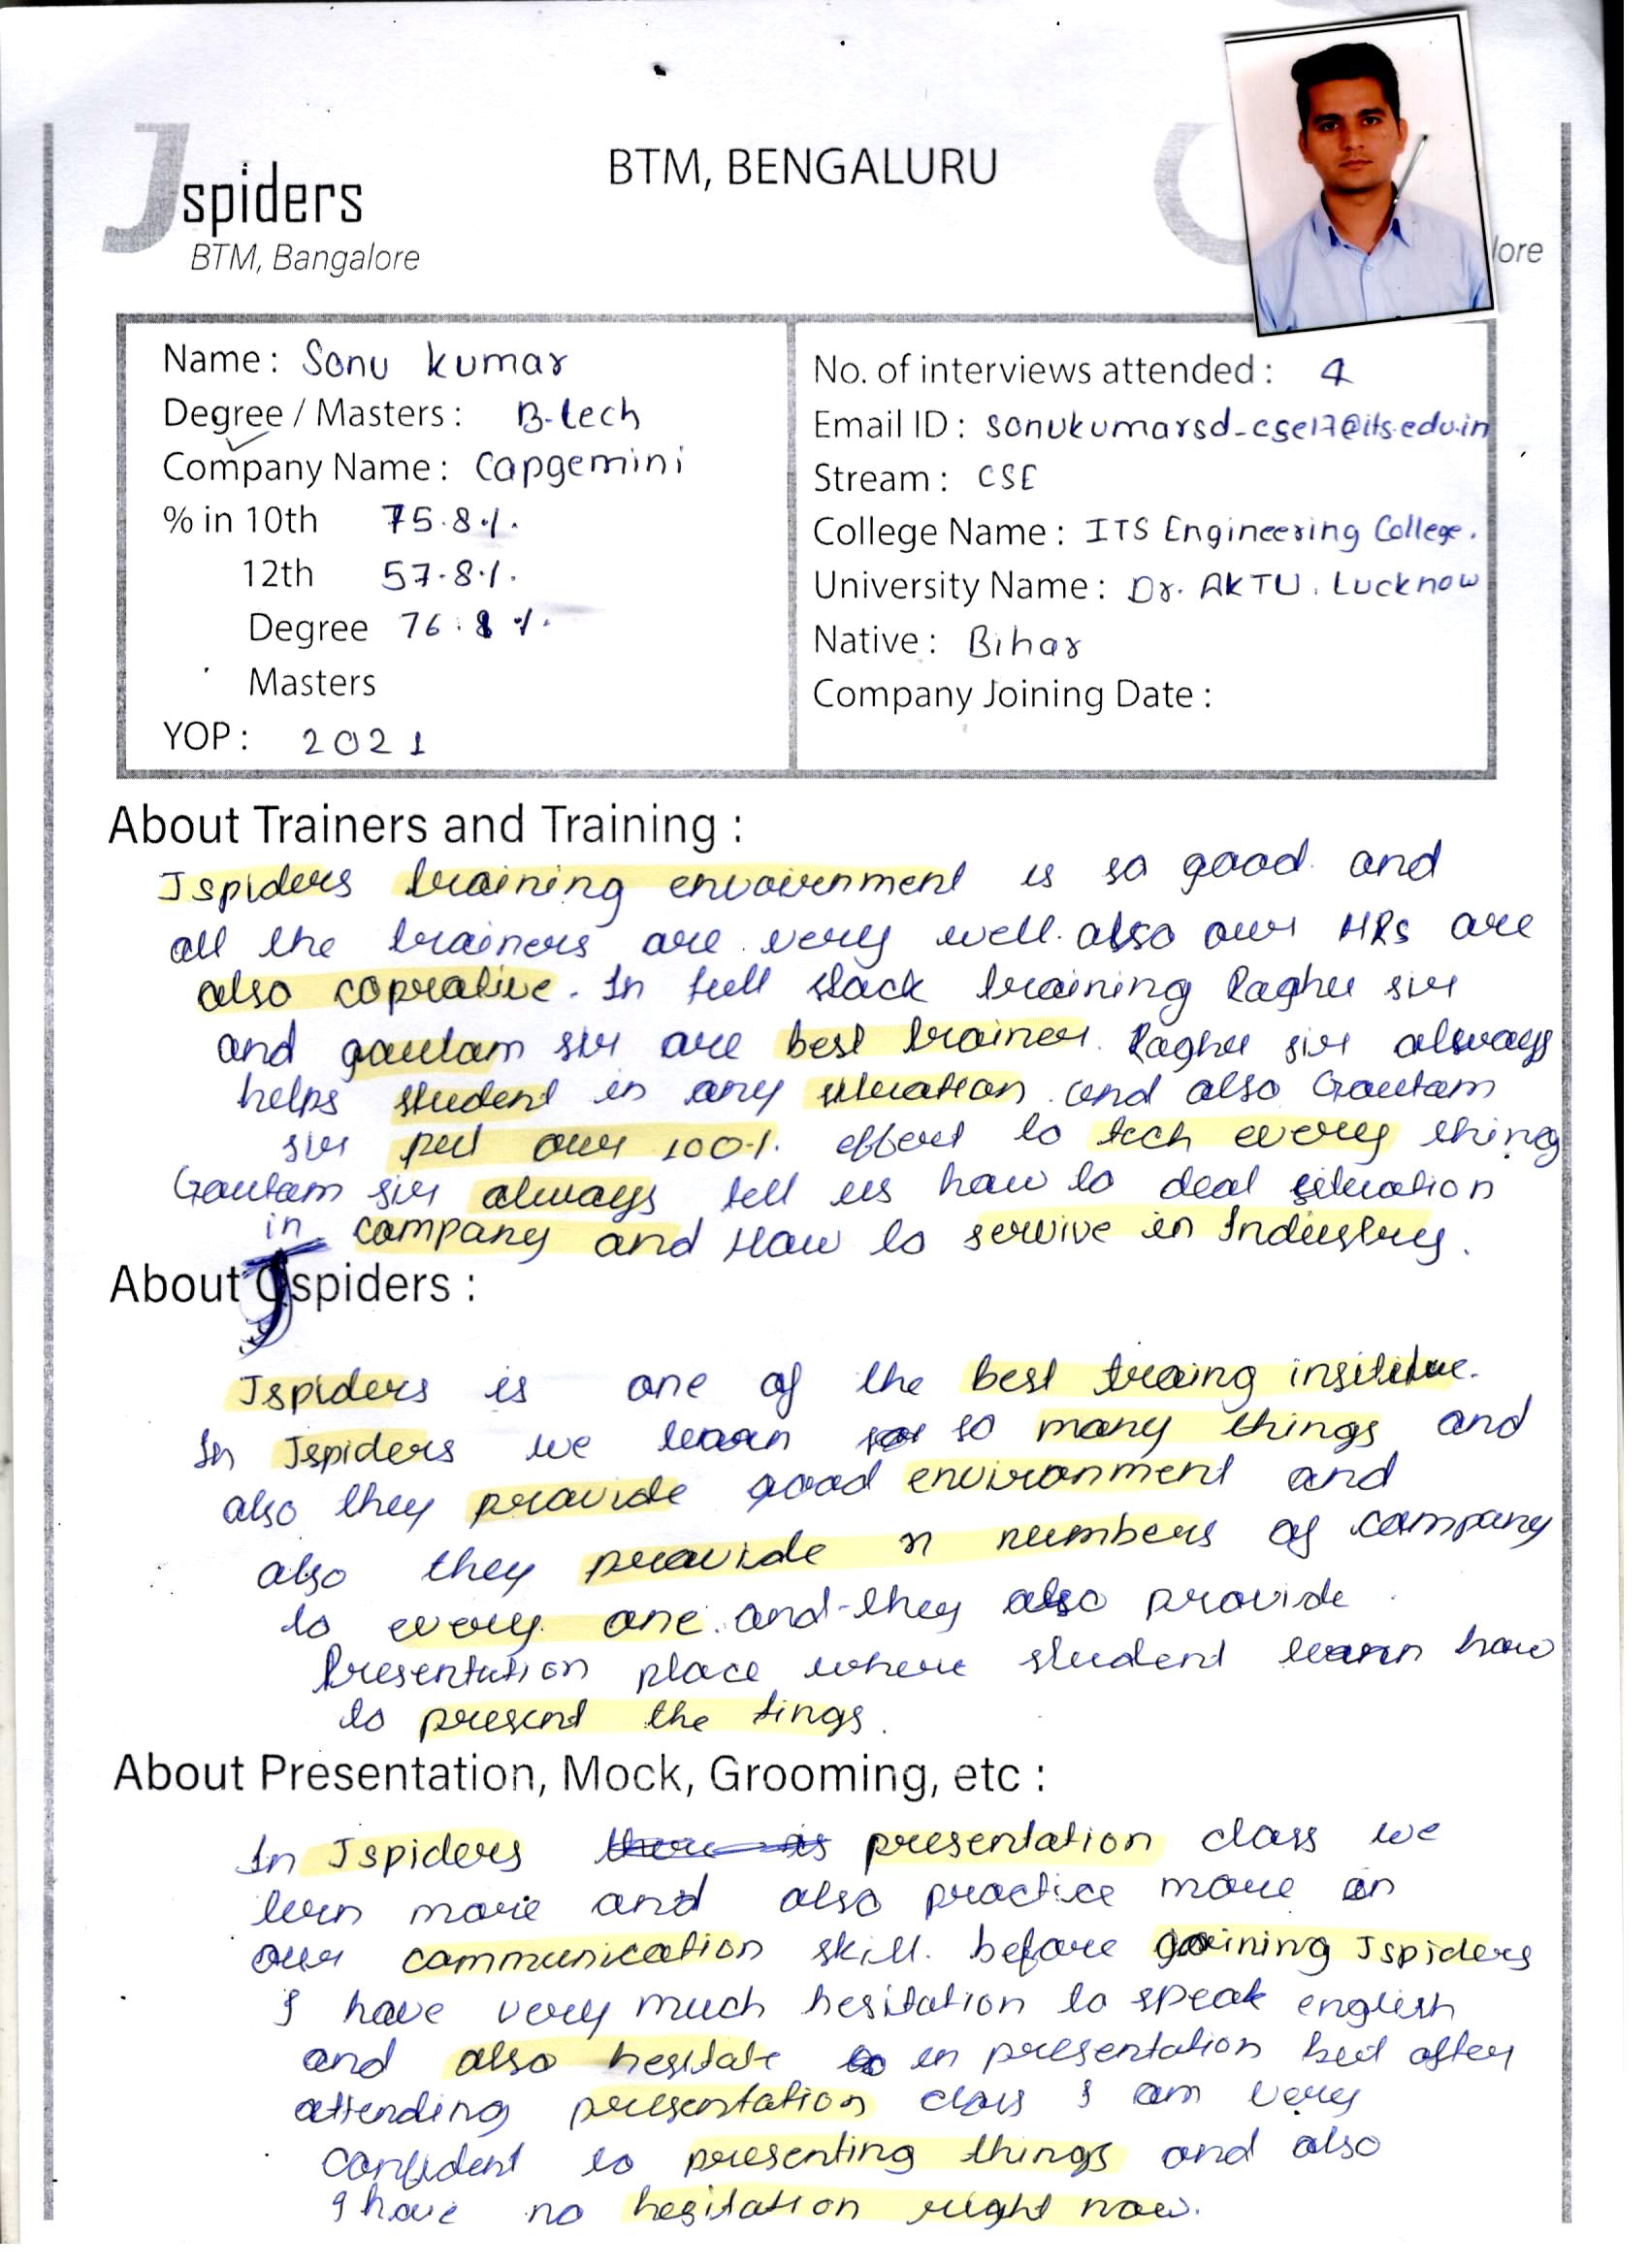 Jspiders
BTM, Bangalore
BTM, BENGALURU
lore
Name : Sonu kumar
Degree / Masters : B-tech
Company Name : Capgemini
% in 10th 75.8%.
12th 57.8%.
Degree 76.8%.
Masters
YOP : 2021
No. of interviews attended : 4
Email ID : sonukumarsd_cse17@its.edu.in
Stream : CSE
College Name : ITS Engineering College.
University Name : Dr. AKTU. Lucknow
Native : Bihar
Company Joining Date :
About Trainers and Training :
Jspiders training envoirnment is so good and
all the trainers are very well. also our HRs are
also coprative. In full stack training Raghu sir
and gautam sir are best trainer. Raghu sir always
helps student in any situation and also Gautam
sir put our 100% effort to tech every thing
Gautam sir always tell us how to deal situation
in company and How to servive in Industry.
About Jspiders :
Jspiders is one of the best traing institute.
In Jspiders we learn so many things and
also they provide good environment and
also they provide n numbers of company
to every one. and they also provide
Presentation place where student learn how
to present the tings.
About Presentation, Mock, Grooming, etc :
In Jspiders there is presentation class we
lern more and also practice more on
our communication skill. before goining Jspiders
I have very much hesitation to speak english
and also hesitate in presentation but after
attending presentation class I am very
confident to presenting things and also
I have no hesitation right now.